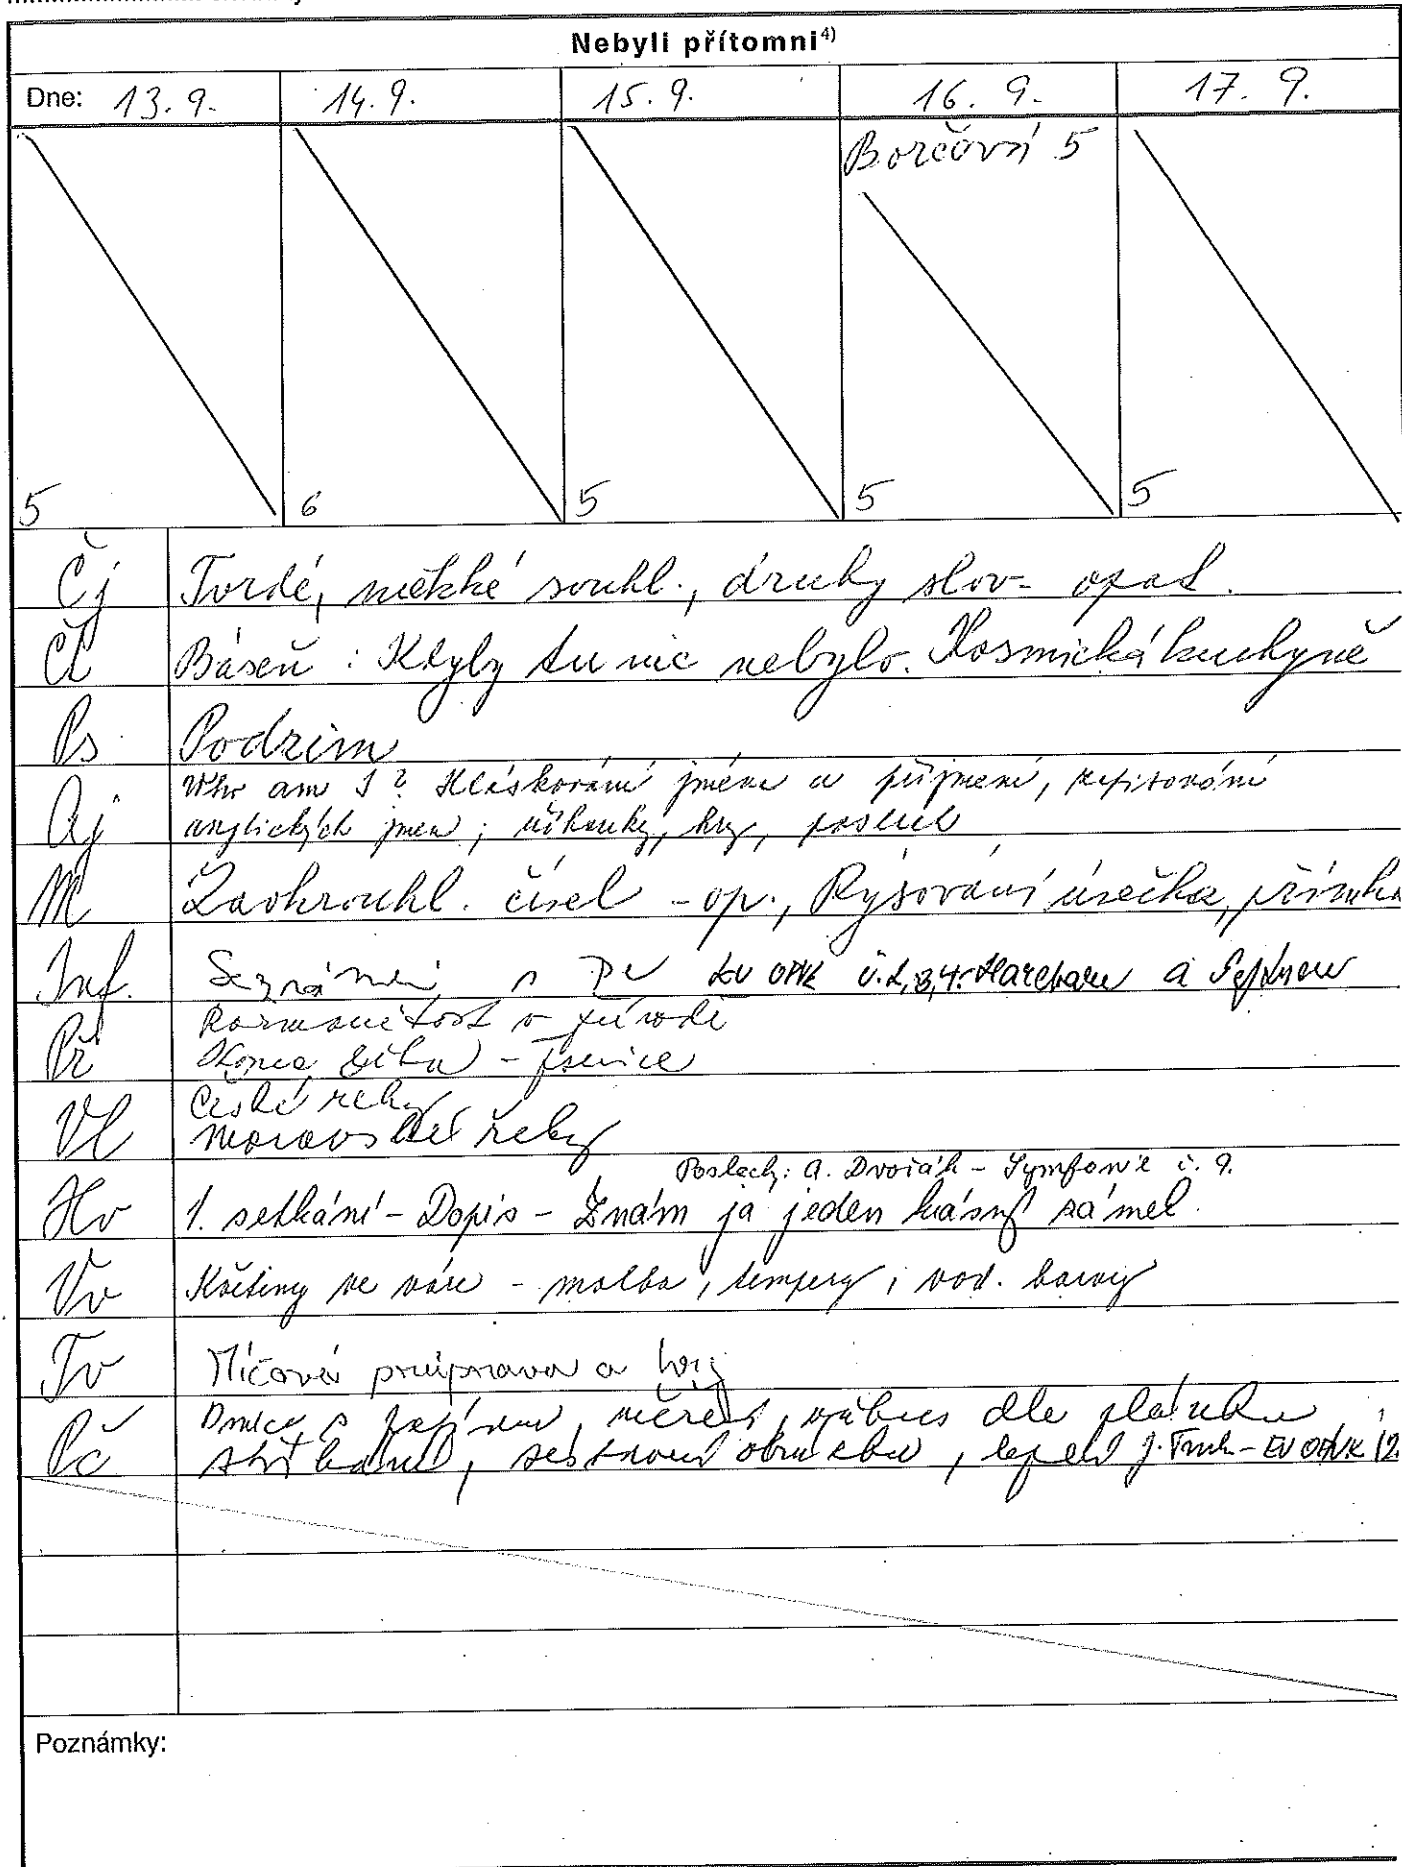 Nebyli přítomni⁴⁾
Dne: 13. 9. 14. 9. 15. 9. 16. 9. 17. 9.
5
5 6 5 5 5
Čj Tvrdé, měkké souhl., druhy slov - opak.
Čt Báseň: Kdyby tu nic nebylo. Kosmická kuchyně
Ps Podzim
Who am I? Hláskování jména a příjmení, zapisování
Aj anglických jmen; říkanky, hry, poslech
M Zaokrouhl. čísel - op., Rýsování úsečka, přímka
Inf. Seznámení s PC EU OPVK Hardware a Software
Rozmanitost v přírodě
Př Konec léta -
České řeky
Vl Moravské řeky
Poslech: A. Dvořák - Symfonie č. 9.
Hv 1. setkání - Dopis - Znám já jeden krásný zámek.
Vv Květiny ve váze - malba, tempery, vod. barvy
Tv Míčová průprava a hry
Práce s papírem, měření, dle plánku,
Pč stříhání, sestavení obrázku, lepení
Poznámky: